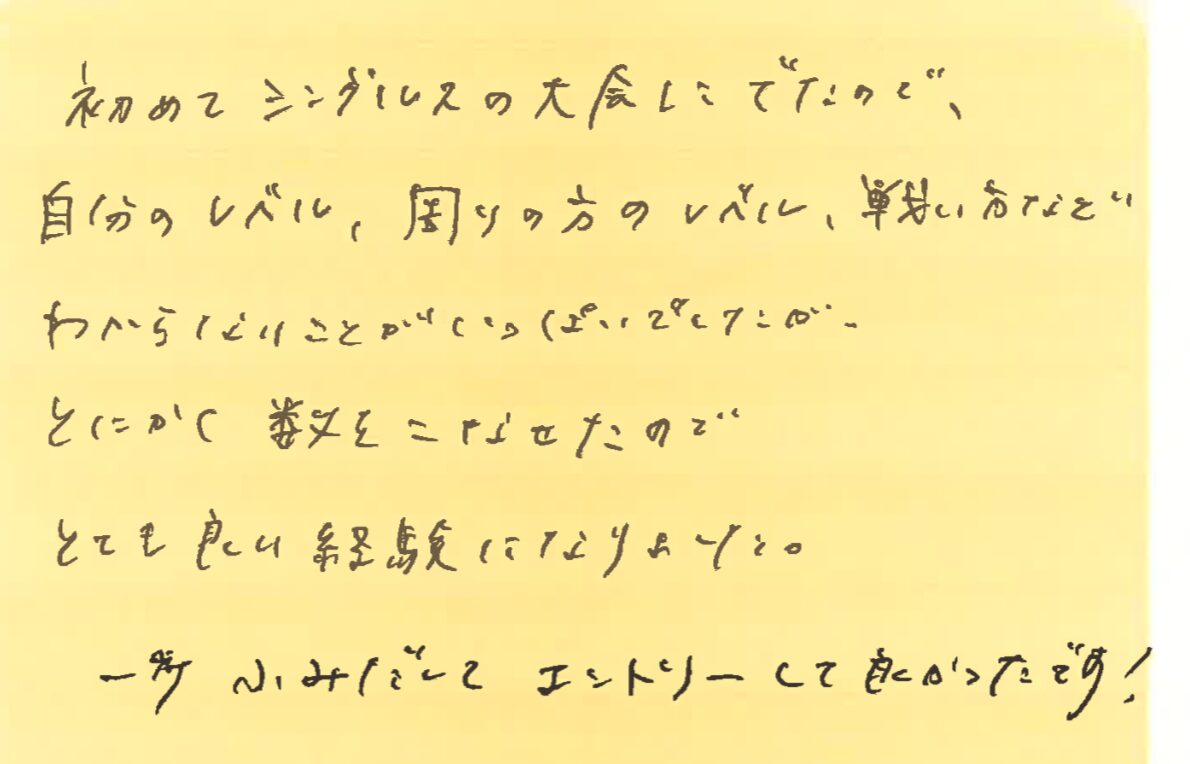 初めてシングルスの大会にでたので、
自分のレベル、周りの方のレベル、戦い方など
わからないことがいっぱいでしたが、
とにかく数をこなせたので
とても良い経験になりました。
一歩ふみだして エントリーして良かったです!